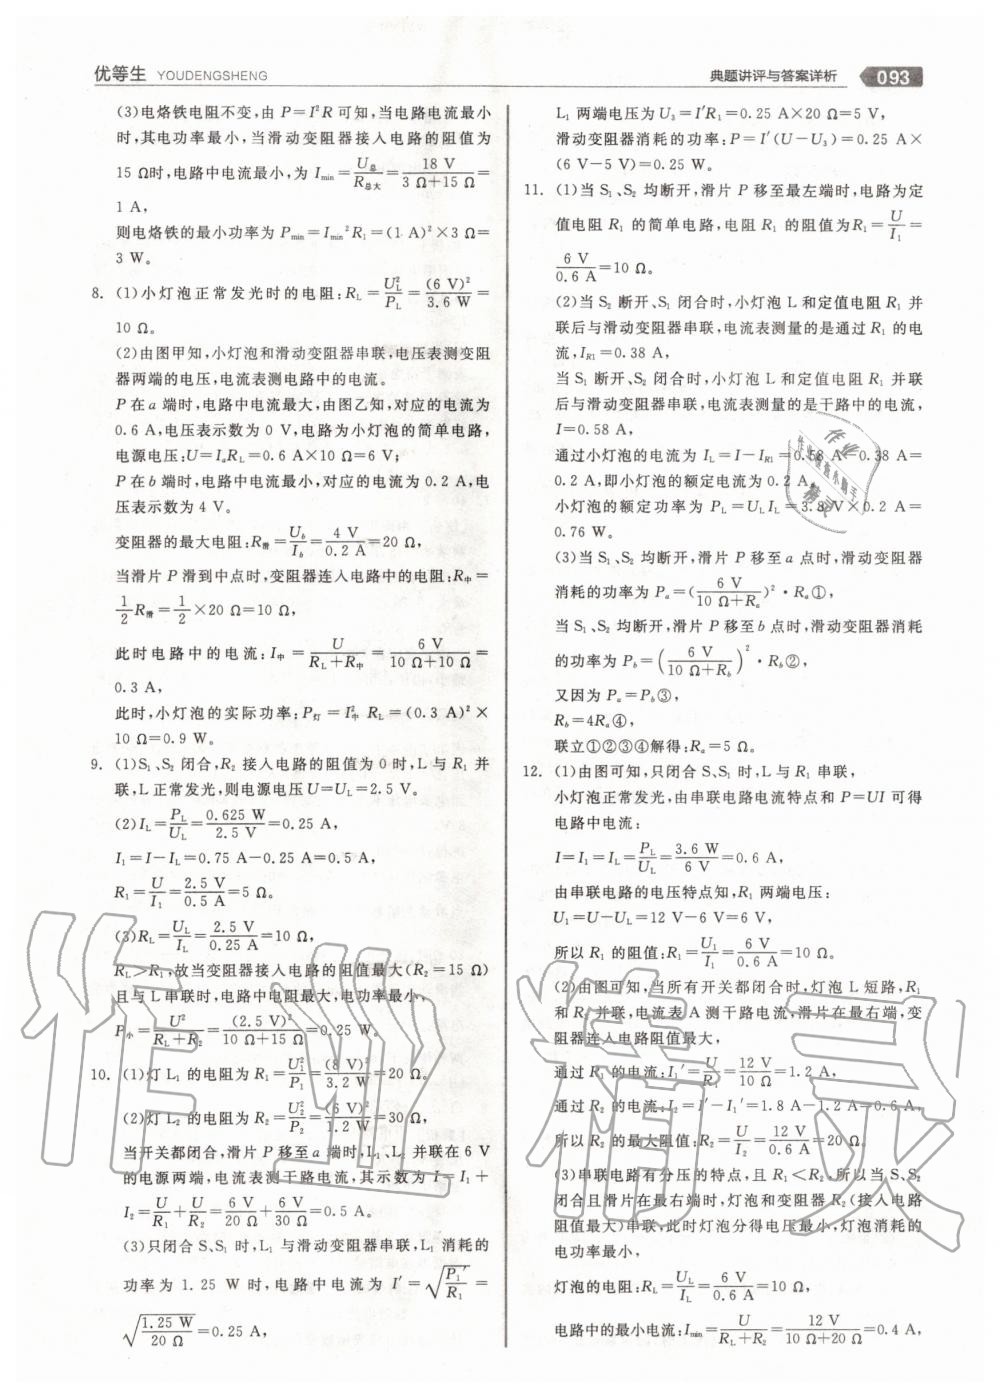 优等生 YOUDENGSHENG
典题讲评与答案详析 093
(3)电烙铁电阻不变,由 P=I²R 可知,当电路电流最小
时,其电功率最小,当滑动变阻器接入电路的阻值为
15 Ω时,电路中电流最小,为 Imin=U总/R总大=18 V/(3 Ω+15 Ω)=
1 A,
则电烙铁的最小功率为 Pmin=Imin²R₁=(1 A)²×3 Ω=
3 W。
8. (1)小灯泡正常发光时的电阻:RL=UL²/PL=(6 V)²/3.6 W=
10 Ω。
(2)由图甲知,小灯泡和滑动变阻器串联,电压表测变阻
器两端的电压,电流表测电路中的电流。
P在a 端时,电路中电流最大,由图乙知,对应的电流为
0.6 A,电压表示数为 0 V,电路为小灯泡的简单电路,
电源电压:U=IaRL=0.6 A×10 Ω=6 V;
P在b 端时,电路中电流最小,对应的电流为 0.2 A,电
压表示数为 4 V。
变阻器的最大电阻:R滑=Ub/Ib=4 V/0.2 A=20 Ω,
当滑片 P 滑到中点时,变阻器连入电路中的电阻:R中=
1/2 R滑=1/2×20 Ω=10 Ω,
此时电路中的电流:I中=U/(RL+R中)=6 V/(10 Ω+10 Ω)=
0.3 A,
此时,小灯泡的实际功率:P灯=I中² RL=(0.3 A)²×
10 Ω=0.9 W。
9. (1)S₁、S₂ 闭合,R₂ 接入电路的阻值为 0 时,L 与 R₁ 并
联,L正常发光,则电源电压U=UL=2.5 V。
(2)IL=PL/UL=0.625 W/2.5 V=0.25 A,
I₁=I-IL=0.75 A-0.25 A=0.5 A,
R₁=U/I₁=2.5 V/0.5 A=5 Ω。
(3)RL=UL/IL=2.5 V/0.25 A=10 Ω,
RL>R₁,故当变阻器接入电路的阻值最大(R₂=15 Ω)
且与 L 串联时,电路中电阻最大,电功率最小,
P小=U²/(RL+R₂)=(2.5 V)²/(10 Ω+15 Ω)=0.25 W。
10. (1)灯 L₁ 的电阻为 R₁=U₁²/P₁=(8 V)²/3.2 W=20 Ω。
(2)灯 L₂ 的电阻为 R₂=U₂²/P₂=(6 V)²/1.2 W=30 Ω,
当开关都闭合,滑片 P 移至最左端时,L₁、L₂ 并联在 6 V
的电源两端,电流表测干路电流,其示数为 I=I₁+
I₂=U/R₁+U/R₂=6 V/20 Ω+6 V/30 Ω=0.5 A。
(3)只闭合 S、S₁ 时,L₁ 与滑动变阻器串联,L₁ 消耗的
功率为 1.25 W 时,电路中电流为 I′=√(P₁′/R₁)=
√(1.25 W/20 Ω)=0.25 A,
L₁ 两端电压为 U₃=I′R₁=0.25 A×20 Ω=5 V,
滑动变阻器消耗的功率:P=I′(U-U₃)=0.25 A×
(6 V-5 V)=0.25 W。
11. (1)当 S₁、S₂ 均断开,滑片 P 移至最左端时,电路为定
值电阻 R₁ 的简单电路,电阻 R₁ 的阻值为R₁=U/I₁=
6 V/0.6 A=10 Ω。
(2)当 S₂ 断开、S₁ 闭合时,小灯泡 L 和定值电阻 R₁ 并
联后与滑动变阻器串联,电流表测量的是通过 R₁ 的电
流,IR1=0.38 A,
当 S₁ 断开、S₂ 闭合时,小灯泡 L 和定值电阻 R₁ 并联
后与滑动变阻器串联,电流表测量的是干路中的电流,
I=0.58 A,
通过小灯泡的电流为 IL=I-IR1=0.58 A-0.38 A=
0.2 A,即小灯泡的额定电流为 0.2 A,
小灯泡的额定功率为 PL=ULIL=3.8 V×0.2 A=
0.76 W。
(3)当 S₁、S₂ 均断开,滑片 P 移至a 点时,滑动变阻器
消耗的功率为 Pa=(6 V/(10 Ω+Ra))²·Ra①,
当 S₁、S₂ 均断开,滑片 P 移至b 点时,滑动变阻器消耗
的功率为 Pb=(6 V/(10 Ω+Rb))²·Rb②,
又因为 Pa=Pb③,
Rb=4Ra④,
联立①②③④解得:Ra=5 Ω。
12. (1)由图可知,只闭合 S、S₁ 时,L 与 R₁ 串联,
小灯泡正常发光,由串联电路电流特点和 P=UI 可得
电路中电流:
I=I₁=IL=PL/UL=3.6 W/6 V=0.6 A,
由串联电路的电压特点知,R₁ 两端电压:
U₁=U-UL=12 V-6 V=6 V,
所以 R₁ 的阻值:R₁=U₁/I₁=6 V/0.6 A=10 Ω。
(2)由图可知,当所有开关都闭合时,灯泡 L 短路,R₁
和 R₂ 并联,电流表 A 测干路电流,滑片在最右端,变
阻器连入电路阻值最大,
通过 R₁ 的电流:I₁′=U/R₁=12 V/10 Ω=1.2 A,
通过 R₂ 的电流:I₂=I′-I₁′=1.8 A-1.2 A=0.6 A,
所以 R₂ 的最大阻值:R₂=U/I₂=12 V/0.6 A=20 Ω。
(3)串联电路有分压的特点,且 R₁<R₂,所以当 S、S₂
闭合且滑片在最右端时,灯泡和变阻器 R₂(接入电路
阻值最大)串联,此时灯泡分得电压最小,灯泡消耗的
电功率最小,
灯泡的电阻:RL=UL/IL=6 V/0.6 A=10 Ω,
电路中的最小电流:Imin=U/(RL+R₂)=12 V/(10 Ω+20 Ω)=0.4 A,
作业精灵